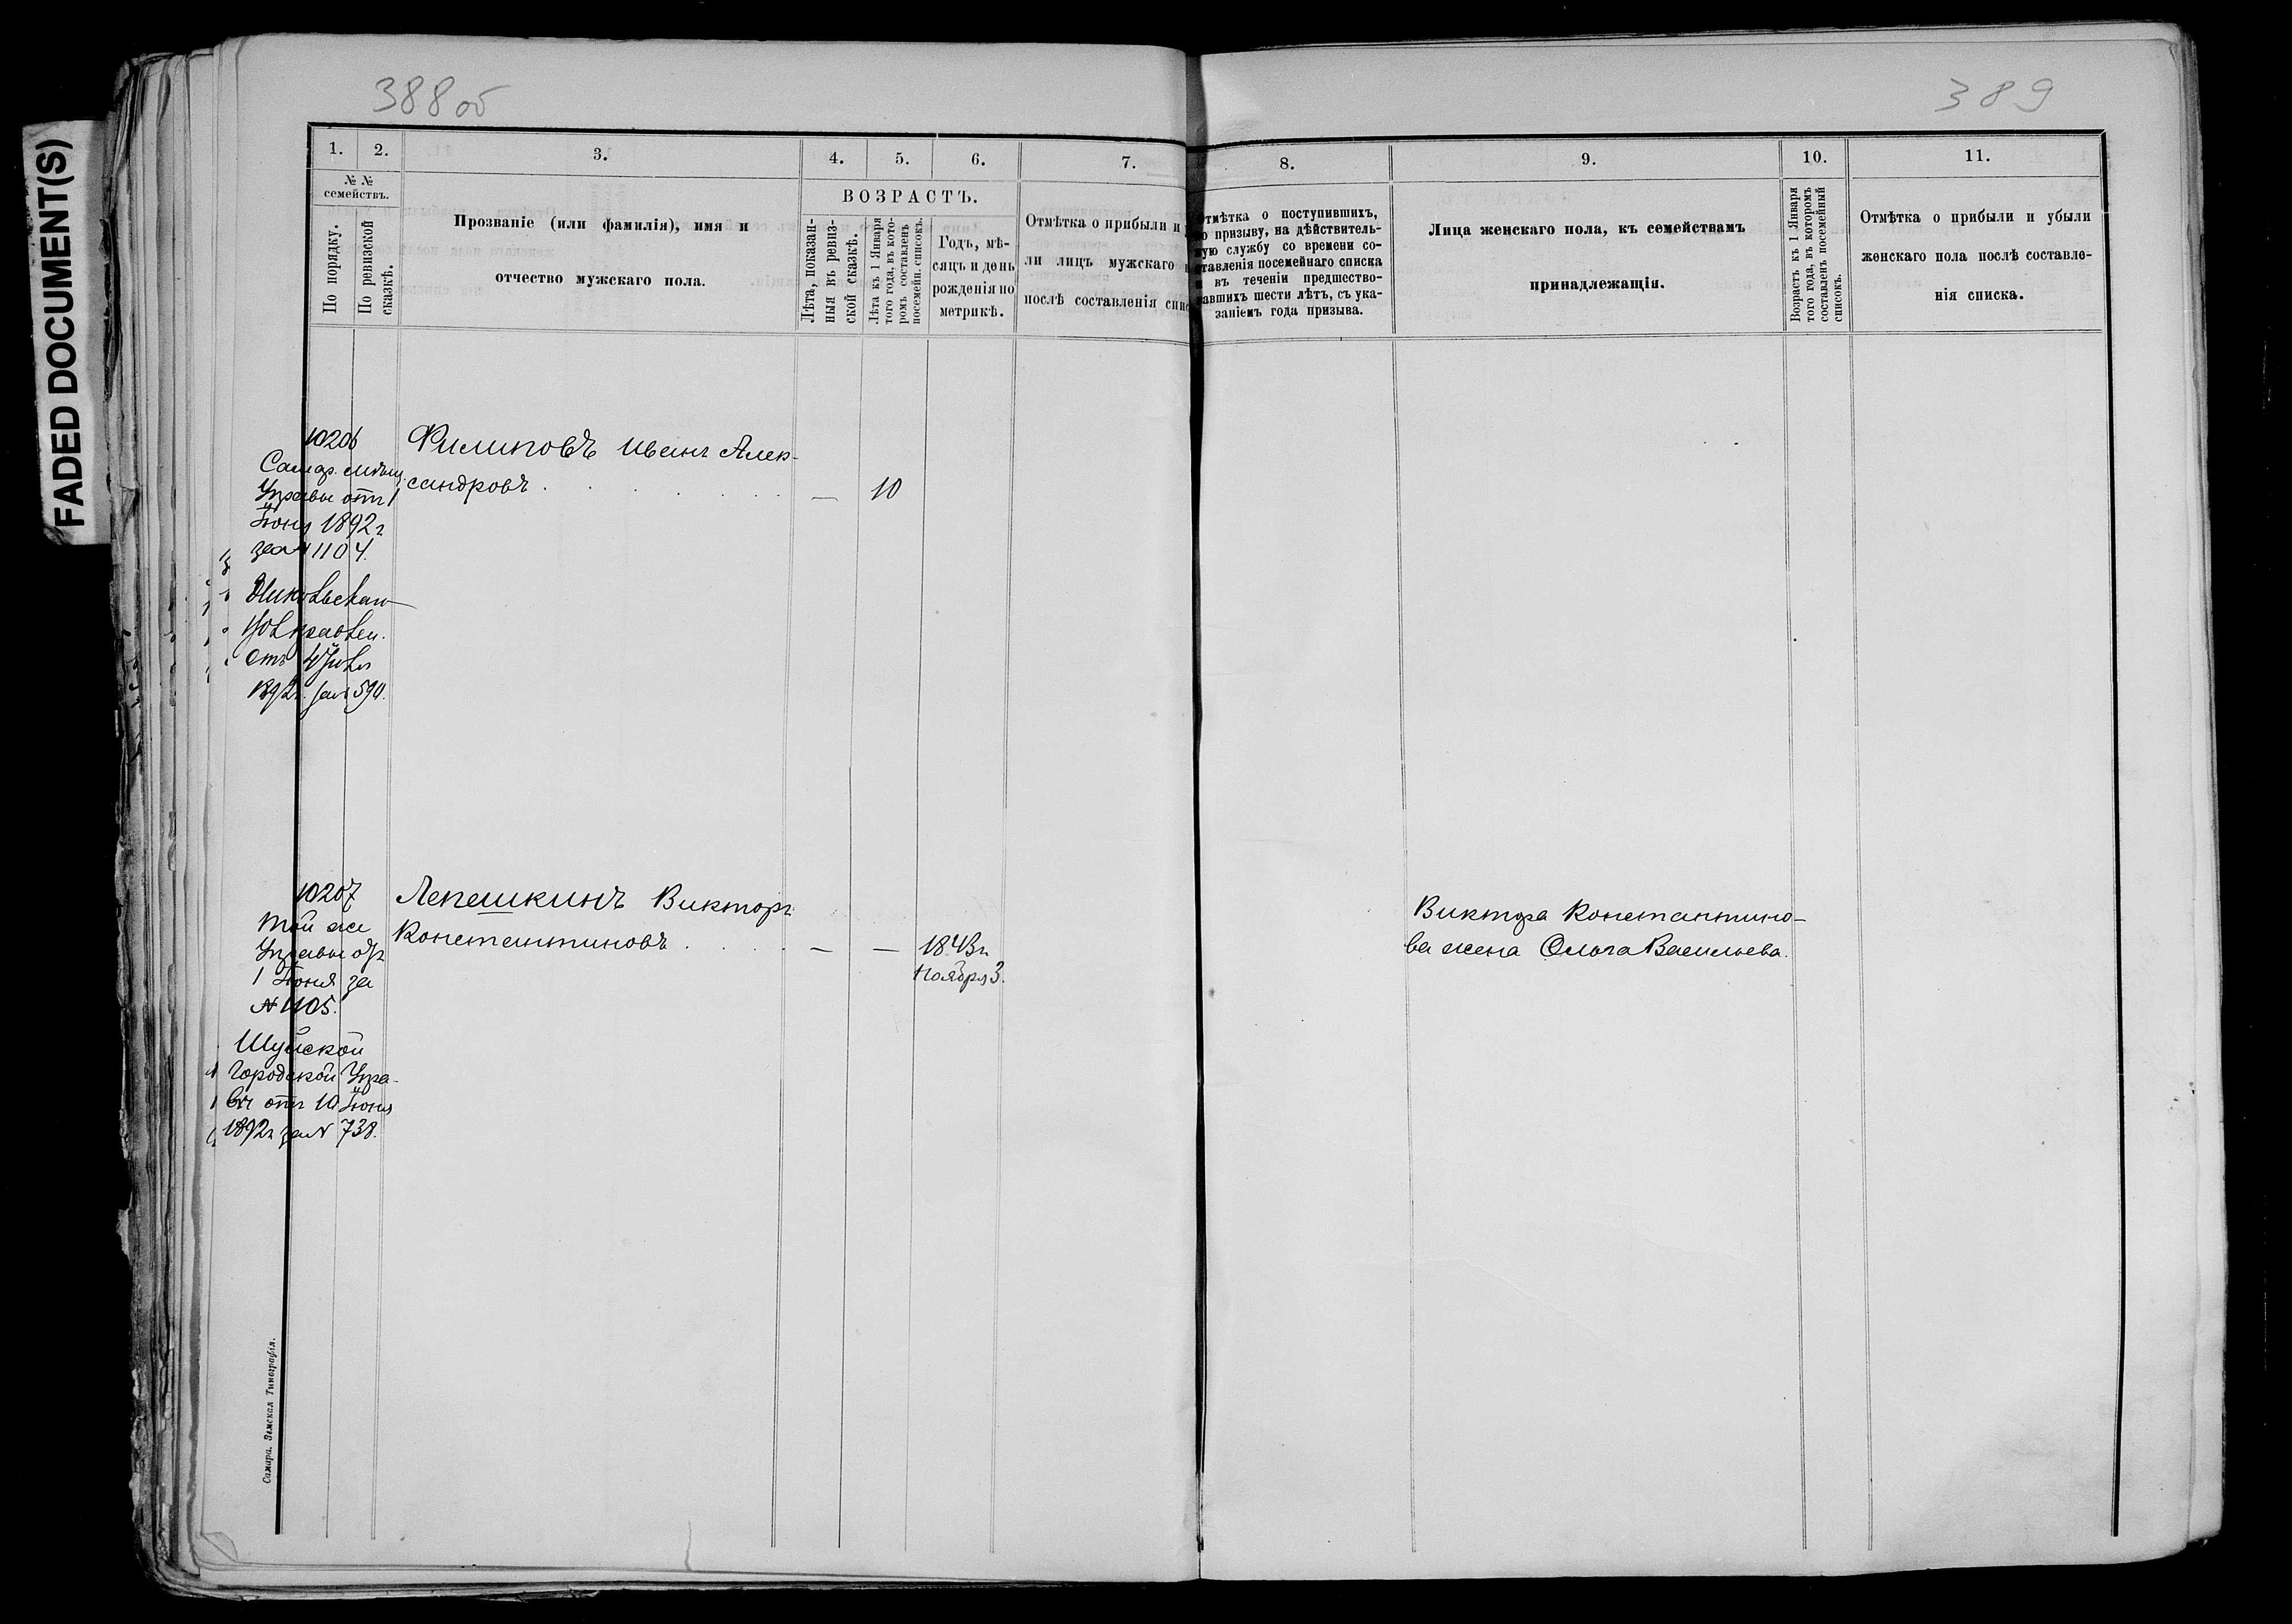 FADED DOCUMENT(S)
388 об
389
1.
2.
3.
4.
5.
6.
7.
8.
9.
10.
11.
№ №
семействъ.
По порядку.
По ревизской
сказкѣ.
Прозваніе (или фамилія), имя и
отчество мужскаго пола.
ВОЗРАСТЪ.
Лѣта, показан-
ныя въ ревиз-
ской сказкѣ.
Лѣта къ 1 Января
того года, въ кото-
ромъ составленъ
посемейн. списокъ.
Годъ, мѣ-
сяцъ и день
рожденія по
метрикѣ.
Отмѣтка о прибыли и
ли лицъ мужскаго
послѣ составленія
Отмѣтка о поступившихъ,
по призыву, на дѣйствитель-
ную службу со времени со-
ставленія посемейнаго списка
и въ теченіи предшество-
вавшихъ шести лѣтъ, съ ука-
заніемъ года призыва.
Лица женскаго пола, къ семействамъ
принадлежащія.
Возрастъ къ 1 Января
того года, въ которомъ
составленъ посемейный
списокъ.
Отмѣтка о прибыли и убыли
женскаго пола послѣ составле-
нія списка.
10206
Самар. мѣщ.
Управы отъ 1
Іюня 1892 г
за № 1104.
Филиповъ Иванъ Алек-
сандровъ . . . . . . — 10
Никольскаго
Вол. правлен.
отъ 4 Іюля
1892 г. за № 590.
10207
Той же
Управы отъ
1 Іюня за
№ 1105.
Лепешкинъ Викторъ
Константиновъ . . . . — — 1843 г.
Ноября 3.
Виктора Константино-
ва жена Ольга Васильева.
Шуйской
Городской Упра-
вы отъ 10 Іюня
1892 г за № 738.
Самара. Земская Типографія.